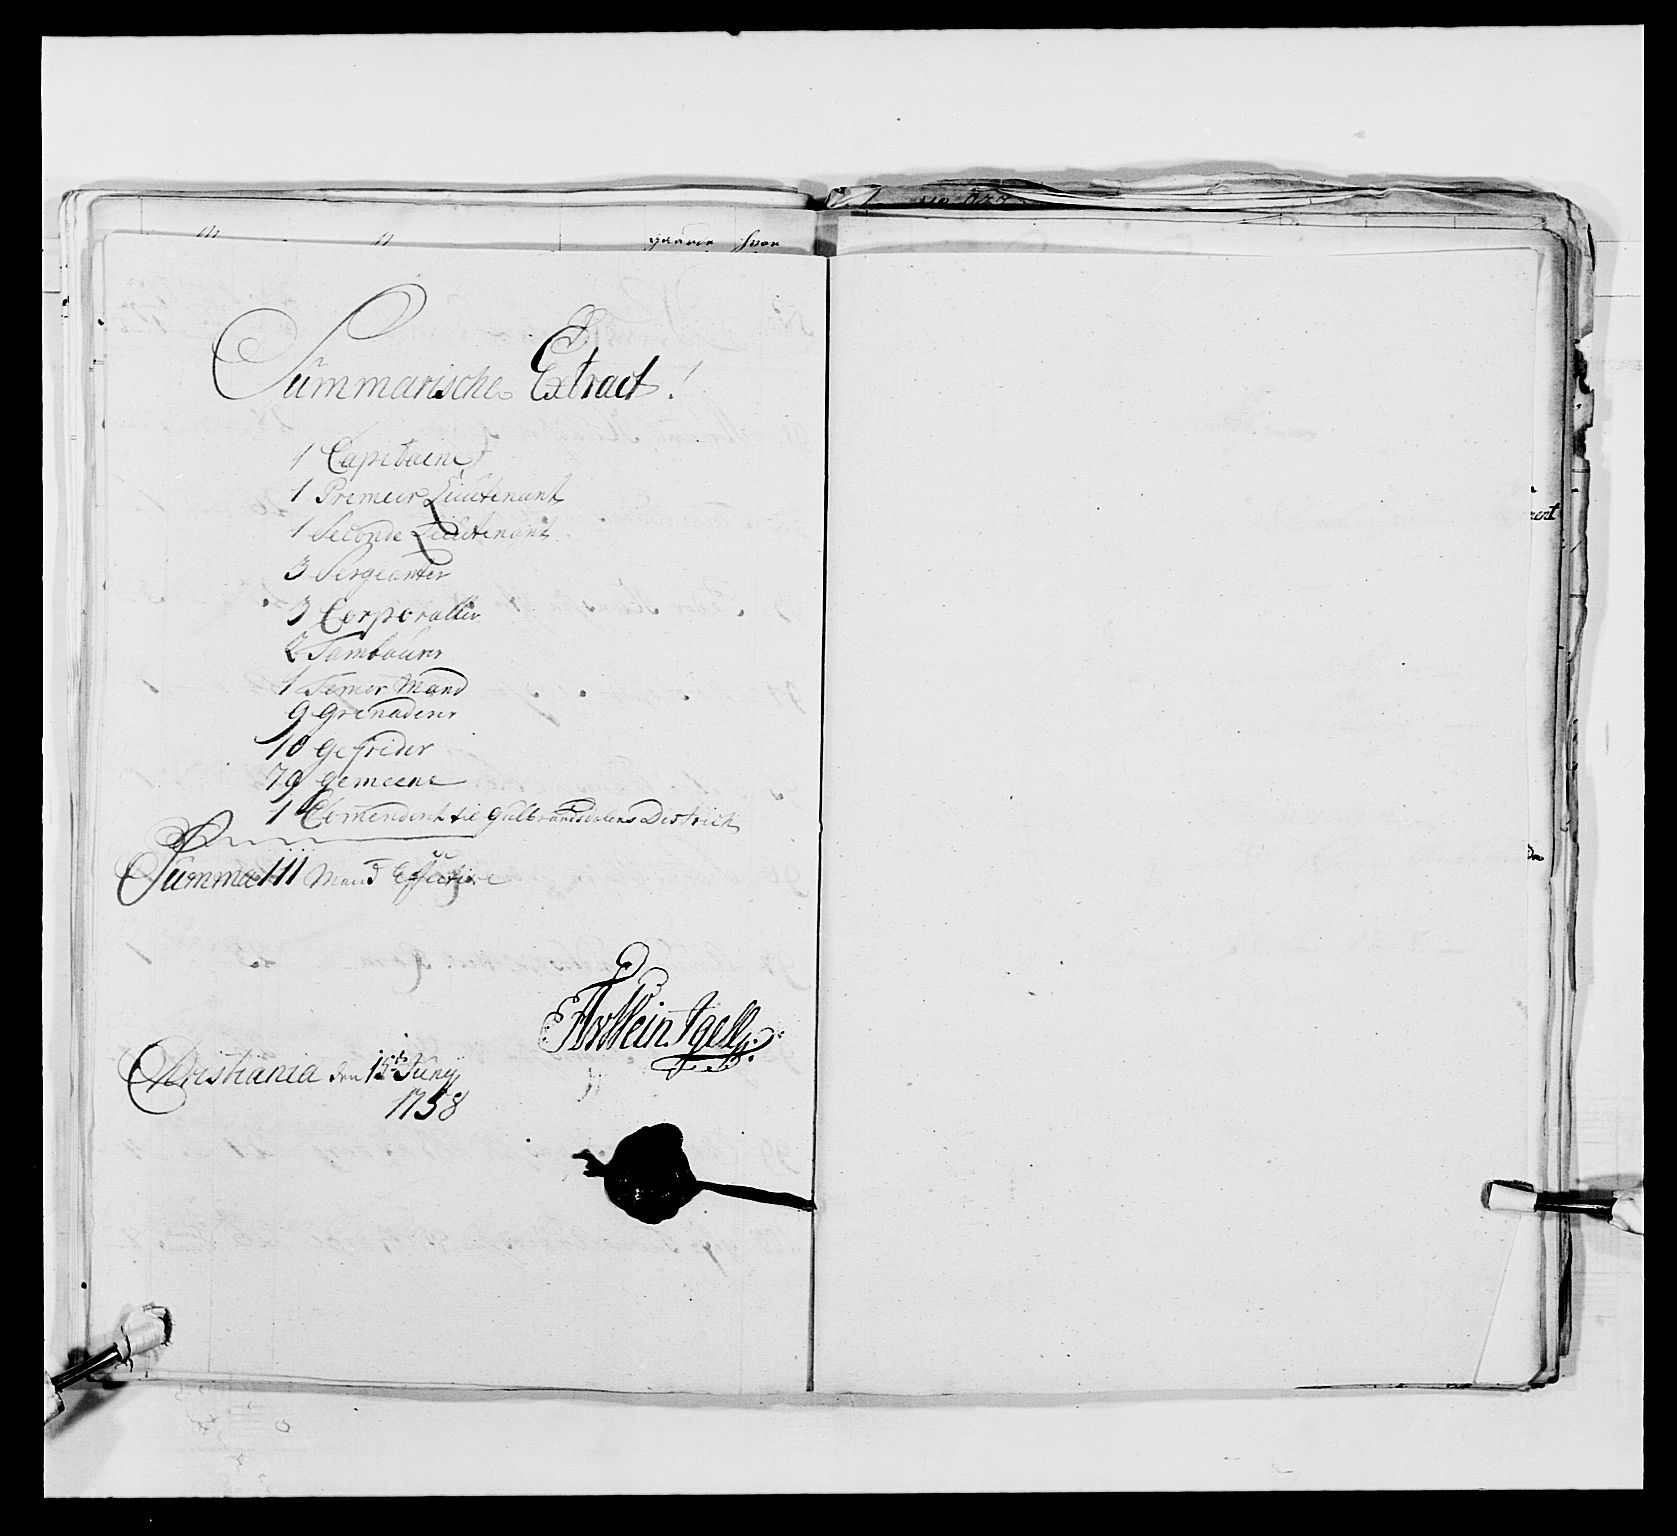 gaarde hvor
Summarische Extract!
1 Capitaine
1 Premeir Lieutenant
1 Seconde Lieutenant
3 Sergeanter
3 Corporaller
2 Tambourer
1 Temer Mand
9 Grenaderer
10 Gefrider
79 Gemeene
1 Comenderit til Gulbrandsdalens District
Summa 111 Mand Effective
Christiania den 15de Juny
1758